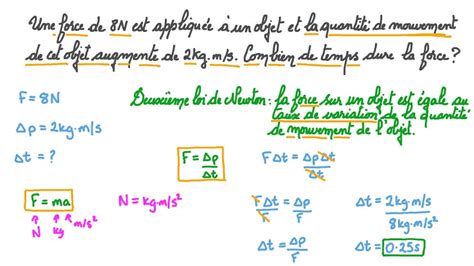 Une force de 8N est appliquée à un objet et la quantité de mouvement
de cet objet augmente de 2kg.m/s. Combien de temps dure la force ?
F = 8N
Deuxième loi de Newton : la force sur un objet est égale au
taux de variation de la quantité
de mouvement de l'objet.
Δp = 2kg·m/s
Δt = ?
F = Δp/Δt
FΔt = ΔpΔt/Δt
F = ma
N kg m/s²
N = kg·m/s²
FΔt/F = Δp/F
Δt = 2kg·m/s / 8kg·m/s²
Δt = Δp/F
Δt = 0.25s